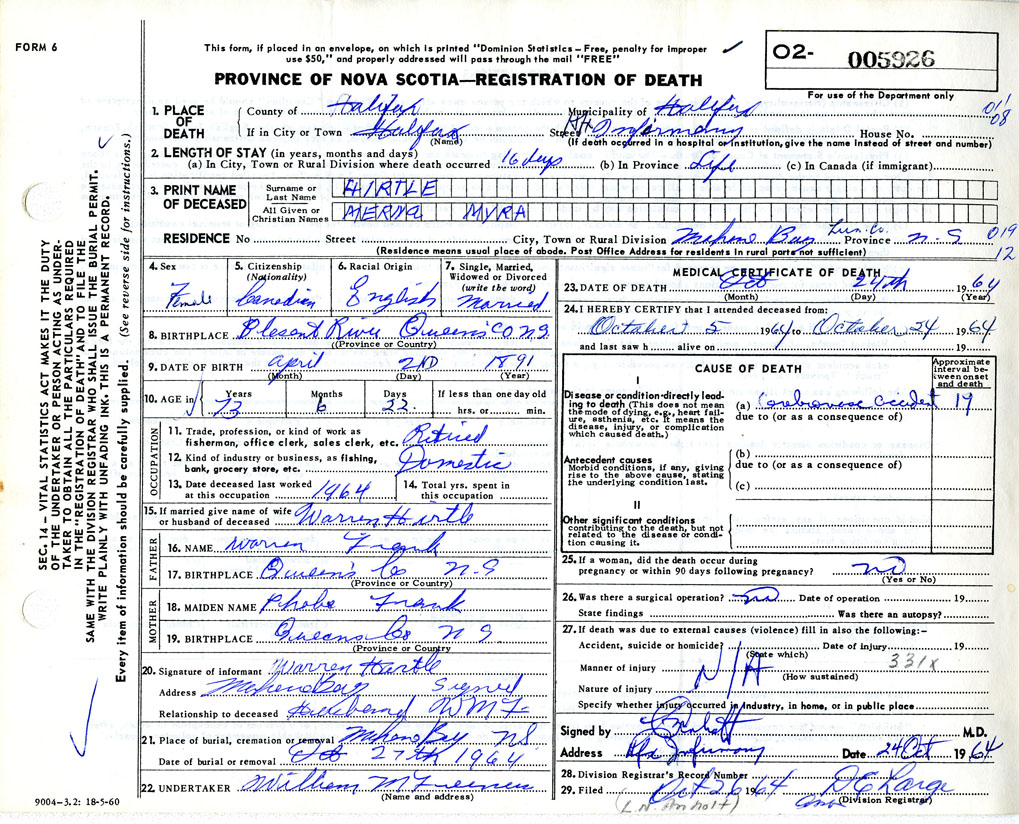 FORM 6
This form, if placed in an envelope, on which is printed "Dominion Statistics – Free, penalty for improper
use $50," and properly addressed will pass through the mail "FREE"
PROVINCE OF NOVA SCOTIA—REGISTRATION OF DEATH
O2- 005926
For use of the Department only
1. PLACE OF DEATH
County of Halifax Municipality of Halifax 01/08
If in City or Town Halifax Street Hx Infirmary House No.
(Name) (If death occurred in a hospital or institution, give the name instead of street and number)
2. LENGTH OF STAY (in years, months and days)
(a) In City, Town or Rural Division where death occurred 16 days (b) In Province Life (c) In Canada (if immigrant)
3. PRINT NAME OF DECEASED
Surname or Last Name HIRTLE
All Given or Christian Names MERNA MYRA
RESIDENCE No Street City, Town or Rural Division Mahone Bay Lun. Co. Province N.S 019
12
(Residence means usual place of abode. Post Office Address for residents in rural parts not sufficient)
4. Sex Female
5. Citizenship (Nationality) Canadian
6. Racial Origin English
7. Single, Married, Widowed or Divorced (write the word) Married
8. BIRTHPLACE Plesent River Queen's CO NS
(Province or Country)
9. DATE OF BIRTH April 2ND 1891
(Month) (Day) (Year)
10. AGE in Years 73 Months 6 Days 22 If less than one day old hrs. or min.
OCCUPATION
11. Trade, profession, or kind of work as fisherman, office clerk, sales clerk, etc. Retired
12. Kind of industry or business, as fishing, bank, grocery store, etc. Domestic
13. Date deceased last worked at this occupation 1964
14. Total yrs. spent in this occupation
15. If married give name of wife or husband of deceased Warren Hirtle
FATHER
16. NAME Warren Frank
17. BIRTHPLACE Queen's Co N.S
(Province or Country)
MOTHER
18. MAIDEN NAME Phobe Frank
19. BIRTHPLACE Queens Co N S
(Province or Country
20. Signature of informant Warren Hartle
Address Mahone Bay Signed
Relationship to deceased Husband WMF
21. Place of burial, cremation or removal Mahone Bay NS
Date of burial or removal Oct 27th 1964
22. UNDERTAKER William
(Name and address)
9004-3.2: 18-5-60
MEDICAL CERTIFICATE OF DEATH
23. DATE OF DEATH Oct 24th 1964
(Month) (Day) (Year)
24. I HEREBY CERTIFY that I attended deceased from:
October 5 1964 to October 24 1964
and last saw h alive on 19
CAUSE OF DEATH
Approximate interval between onset and death
I
Disease or condition directly leading to death (This does not mean the mode of dying, e.g., heart failure, asthenia, etc. It means the disease, injury, or complication which caused death.)
(a) accident 19
due to (or as a consequence of)
Antecedent causes
Morbid conditions, if any, giving rise to the above cause, stating the underlying condition last.
(b)
due to (or as a consequence of)
(c)
II
Other significant conditions
contributing to the death, but not related to the disease or condition causing it.
25. If a woman, did the death occur during pregnancy or within 90 days following pregnancy? no
(Yes or No)
26. Was there a surgical operation? no Date of operation 19
State findings Was there an autopsy?
27. If death was due to external causes (violence) fill in also the following:–
Accident, suicide or homicide? Date of injury 19
(State which) 331X
Manner of injury N/A
(How sustained)
Nature of injury
Specify whether injury occurred in Industry, in home, or in public place
Signed by M.D.
Address Hfx Infirmary Date 24 Oct 1964
28. Division Registrar's Record Number
29. Filed Oct 26 1964 D E Large
(L.N. Anholt) (Division Registrar)
SEC. 14 – VITAL STATISTICS ACT MAKES IT THE DUTY
OF THE UNDERTAKER OR PERSON ACTING AS UNDER-
TAKER TO OBTAIN ALL THE PARTICULARS REQUIRED
IN THE "REGISTRATION OF DEATH" AND TO FILE THE
SAME WITH THE DIVISION REGISTRAR WHO SHALL ISSUE THE BURIAL PERMIT.
WRITE PLAINLY WITH UNFADING INK. THIS IS A PERMANENT RECORD.
Every item of information should be carefully supplied. (See reverse side for instructions.)